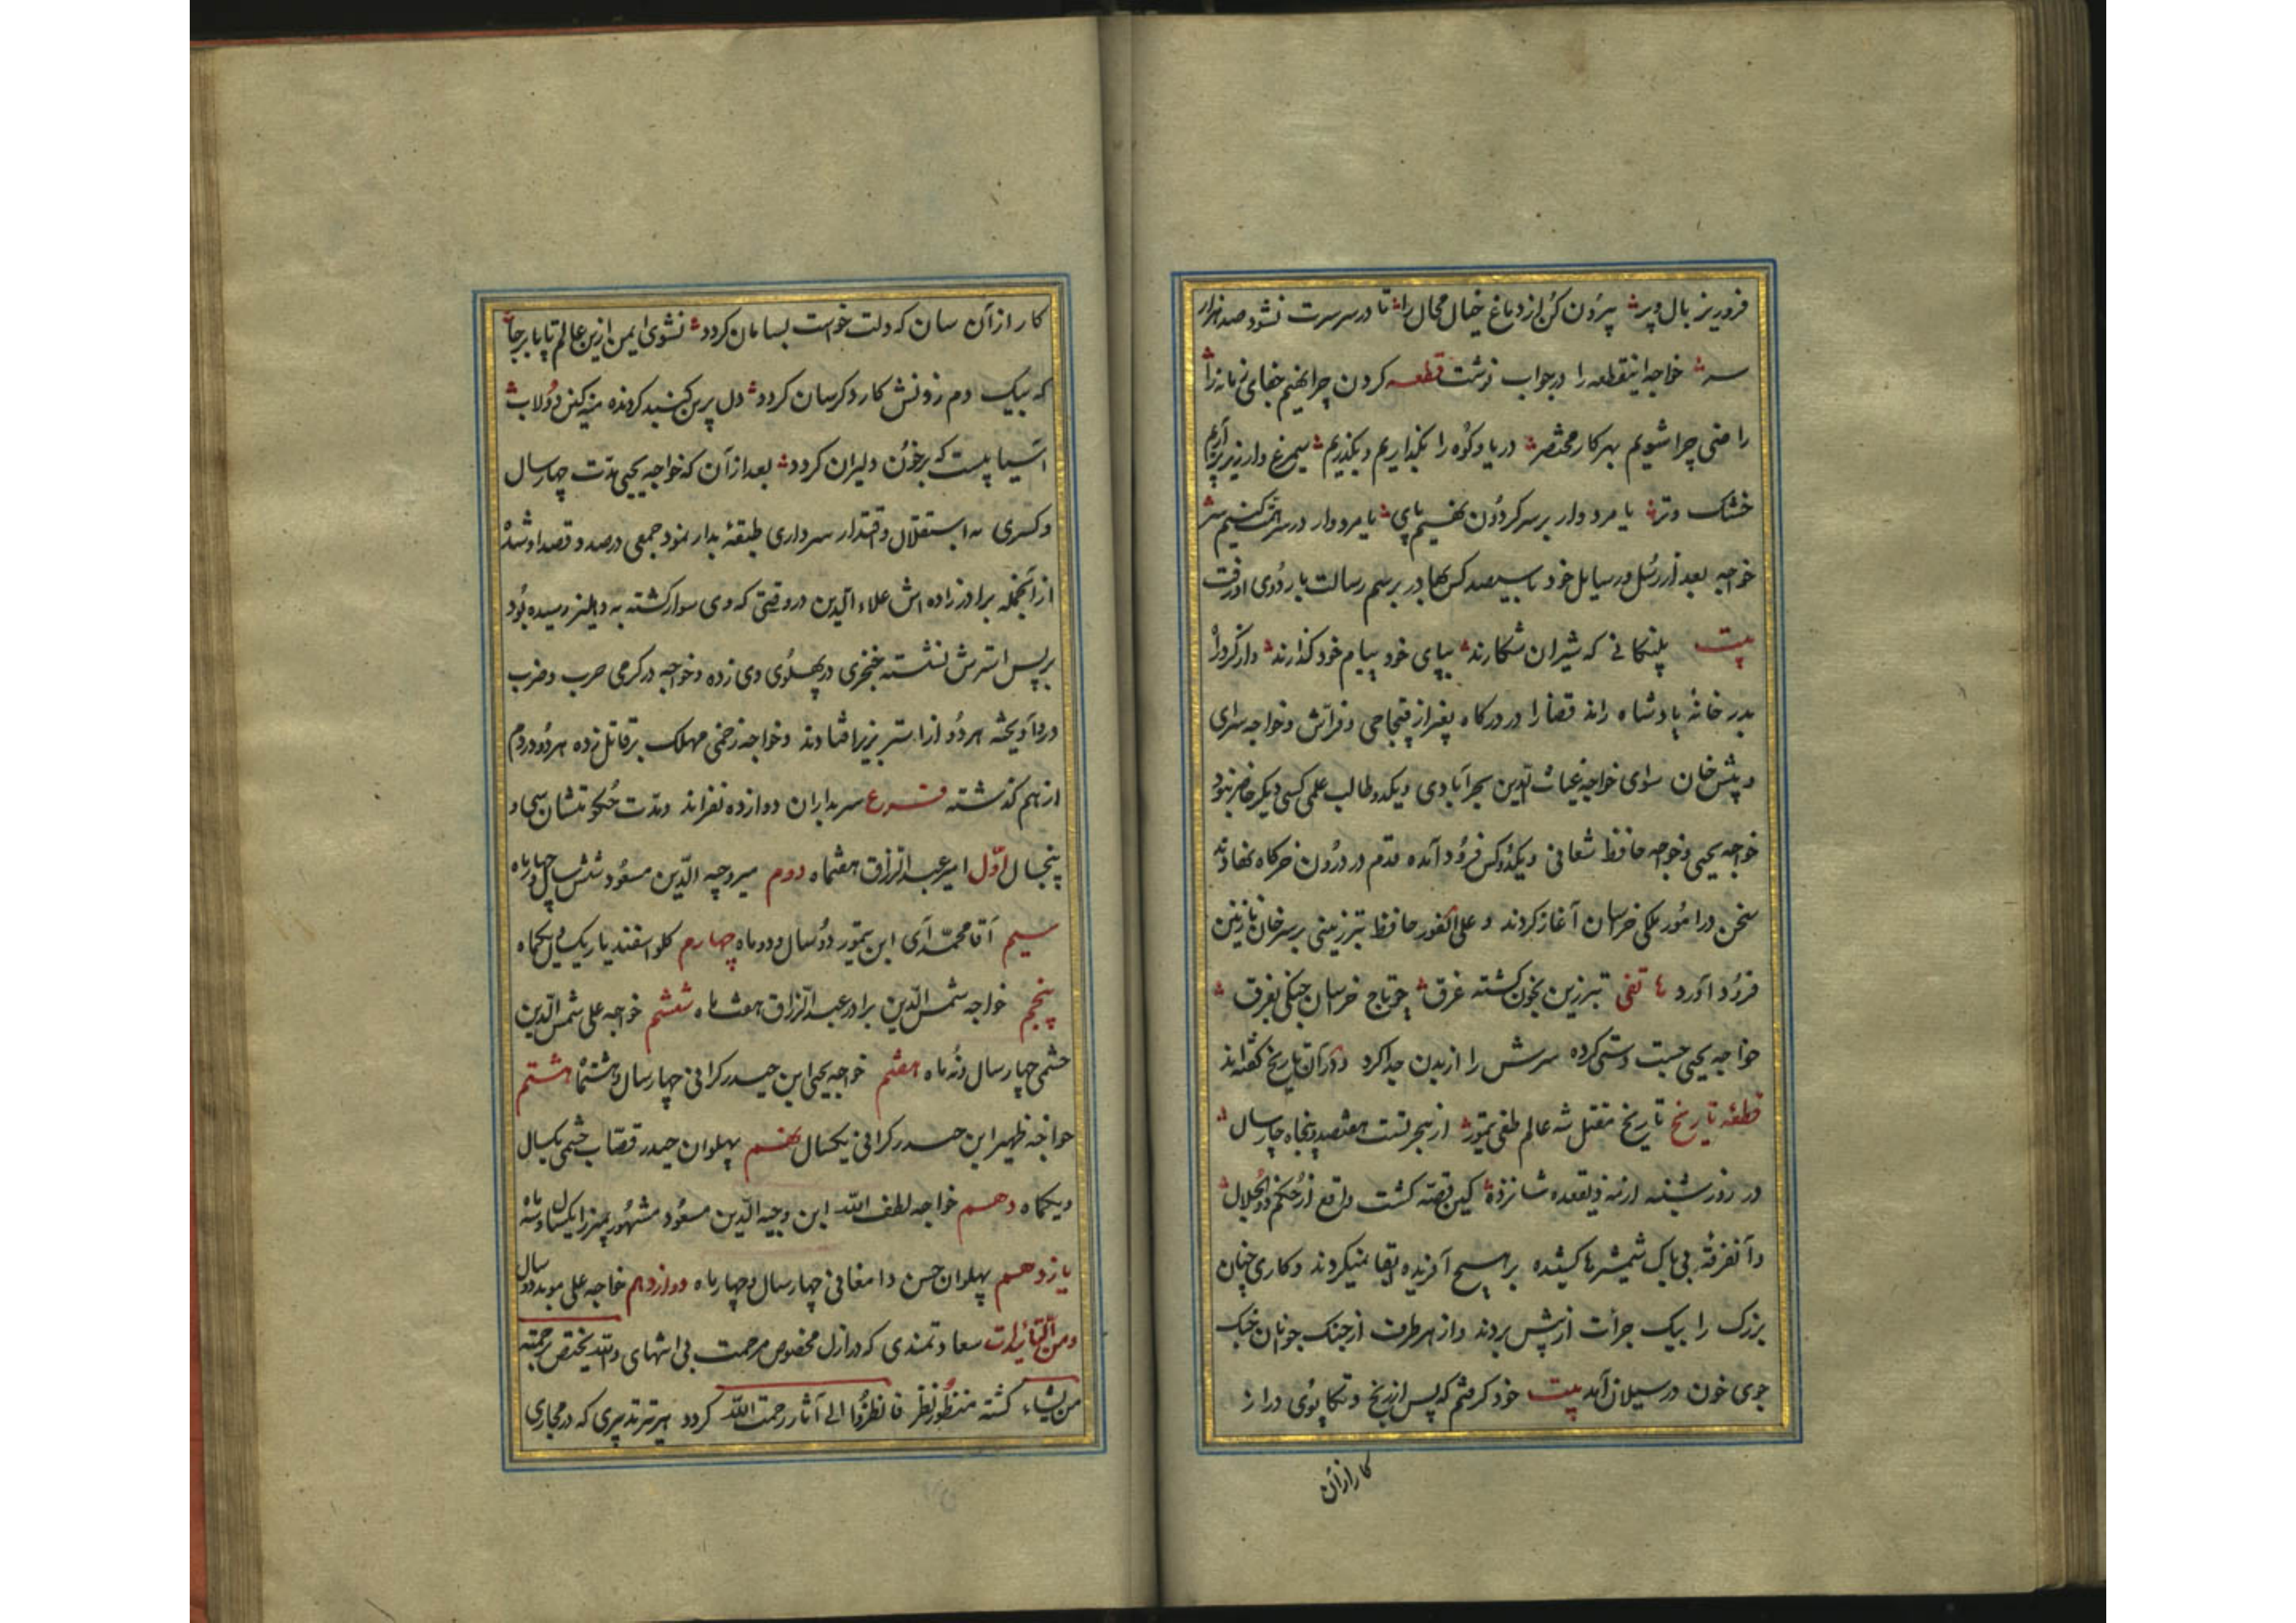 فروریز بال و پر پرون کن از دماغ خیال محال را تا در سر سرت نشود صد هزار
سر خواجه اینقطعه را در جواب نوشت قطعه کردن چرا نهیم جفای زمانه را
راضی چرا شویم بهر کار مختصر دریا و کوه را بگذاریم و بگذریم سیمرغ وار زیر پر آریم
خشک و تر یا مرد وار بر سر کردون نهیم پای یا مرد وار در سر همت کنیم سر
خواجه بعد از رسل و رسایل خود با سیصد کس بهادر برسم رسالت باردوی او رفت
بیت پلنکانی که شیران شکارند بپای خود پیام خود کذارند
بدر خانه پادشاه راند قضا را در درکاه بغیر از قیجاجی و فراش و خواجه سرای
و پیش خان سوای خواجه غیاث الدین بحرآبادی و یکدو طالب علمی کسی دیکر حاضر نبود
خواجه یحیی و خواجه حافظ شغانی و یکدو کس فرود آمده قدم در درون خرکاه نهادند
سخن در امور ملکی خراسان آغاز کردند و علی الفور حافظ تبرزینی بر سر خان نازنین
فرود آورد هاتفی تبرزین بخون کشته غرق چو تاج خروسان جنکی بفرق
خواجه یحیی جست و ستی کرده سرش را از بدن جدا کرد و در آن تاریخ کفته اند
قطعه تاریخ تاریخ مقتل شه عالم طغی تمور از هجرتست هفتصد و پنجاه و چار سال
در روز شنبه از مه ذیقعده شانزده کین قصه کشت واقع از حکم ذوالجلال
و آنفرقه بی باک شمشیرها کشیده بر هیچ آفریده ابقا نمیکردند و کاری چنان
بزرک را بیک جرأت از پیش بردند و از هر طرف از جنک جوانان جنک
جوی خون در سیلان آمد بیت خود کرفتم که پس از رنج و تکاپوی دراز
کار از آن
کار از آن سان که دلت خواست بسامان کردد نشوی ایمن ازین عالم ناپابرجا
که بیک دم زدنش کار دکرسان کردد دل برین کنبد کردنده منه کین دولاب
آسیاییست که بر خون دلیران کردد بعد از آن که خواجه یحیی مدت چهار سال
و کسری به استقلال و اقتدار سرداری طبقه بدار نمود جمعی در صدد قصد او شدند
از آنجمله برادر زاده اش علاء الدین در وقتی که وی سوار کشته به دهلیز رسیده بود
بر پس استرش نشسته خنجری در پهلوی وی زده و خواجه در کرمی حرب و ضرب
در وی آویخته هر دو از استر بزیر افتادند و خواجه زخمی مهلک بر قاتل زده هر دو در دم
از هم کذشتند فرع سربداران دوازده نفراند و مدت حکومتشان سی و
پنجسال اول امیر عبدالرزاق هفتماه دوم میر وجیه الدین مسعود شش سال و چهار ماه
سیم آقا محمد آی ابن تیمور دو سال و دو ماه چهارم کلو اسفندیار یک سال و یکماه
پنجم خواجه شمس الدین برادر عبدالرزاق هفت ماه ششم خواجه علی شمس الدین
چشمی چهار سال و نه ماه هفتم خواجه یحیی ابن حیدر کرابی چهار سال و هشتماه هشتم
خواجه ظهیر ابن حیدر کرابی یکسال نهم پهلوان حیدر قصاب چشمی یکسال
و یکماه دهم خواجه لطف الله ابن وجیه الدین مسعود مشهور بمیرزا یکسال و سه ماه
یازدهم پهلوان حسن دامغانی چهار سال و چهار ماه دوازدهم خواجه علی موید دو سال
و من التائیدات سعادتمندی که در ازل مخصوص مرحمت بی انتهای والله یختص برحمته
من یشاء کشته منظور نظر فانظروا الی آثار رحمت الله کردد هر تدبیری که در مجاری